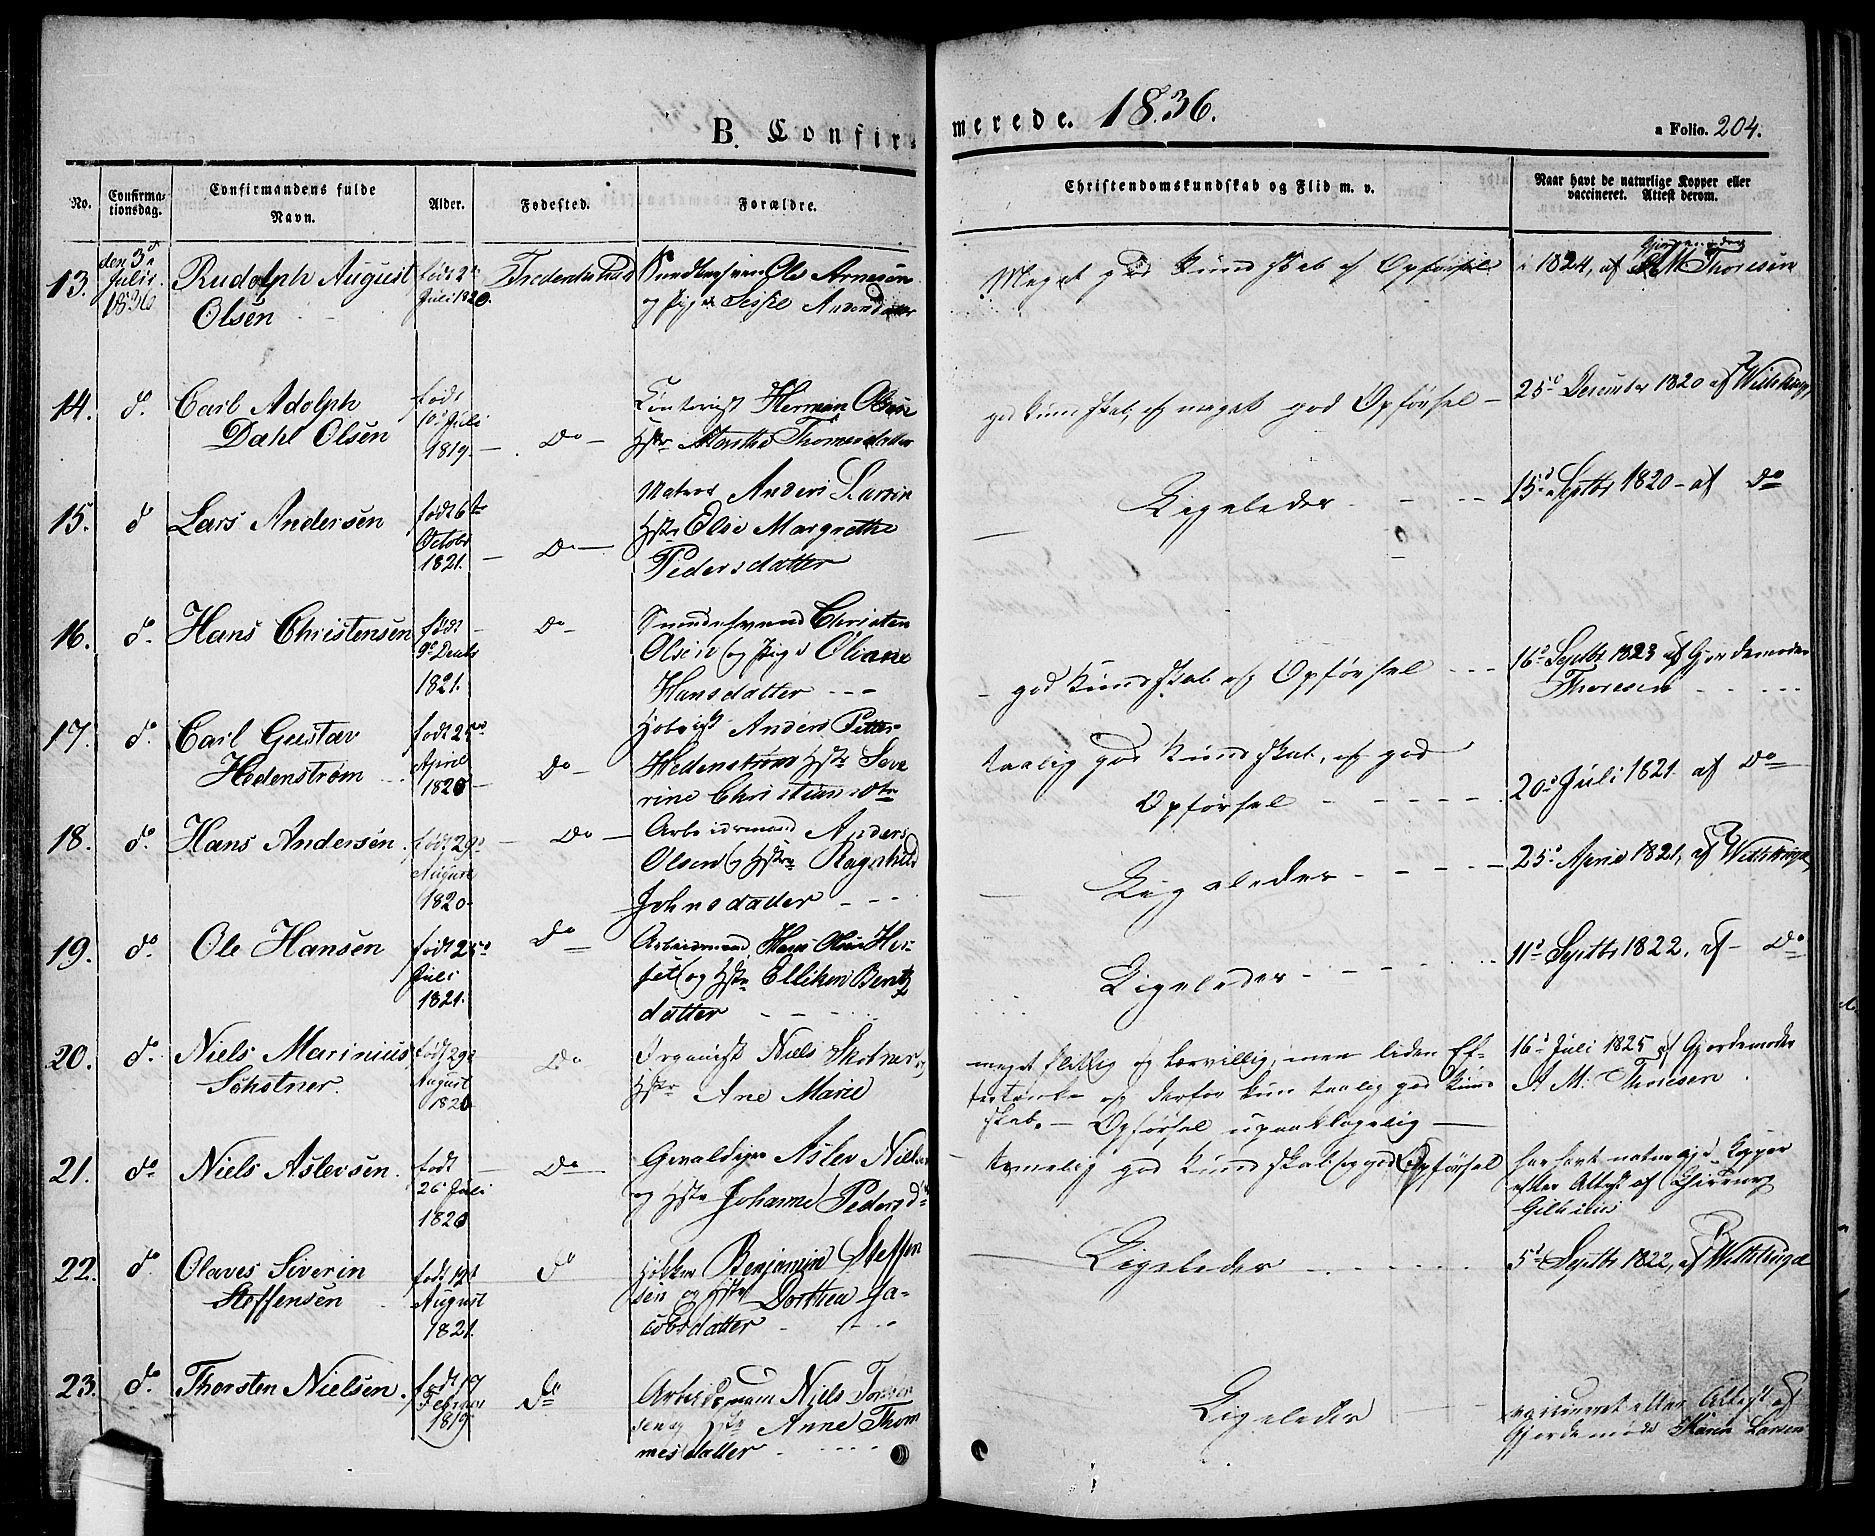 B. Confirmerede. 1836.
a Folio. 204.
No.
Confirmationsdag.
Confirmandens fulde Navn.
Alder.
Fødested.
Forældre.
Christendomskundskab og Flid m. v.
Naar havt de naturlige Kopper eller
vaccineret. Attest derom.
13.
den 3d
Julii
1836
Rudolph August
Olsen
født 2den
Juli 1820.
Ole Arnesøn
og Pige Sissel
Meget god Kundskab og Opførsel
i 1824, af Thoresen
14.
do.
Carl Adolph
Dahl Olsen
født
10d Juli
1819.
Do
Herman Olsen
Hstr Marthe Thomesdatter
god Kundskab, og meget god Opførsel
25d December 1820 af
15.
do
Lars Andersen
født 6te
Octobr
1821.
Do
Matros Anders Larsen
Hstr Else Margrethe
Pedersdatter
Ligeledes
15d Septbr 1820 af Do
16.
do.
Hans Christensen
født
9d Decbr
1821.
Do
Christen
Olsen og Pige Oliane
Hansdatter
god Kundskab og Opførsel
16d Septbr 1823 af Gjordemoder
Thoresen
17.
do.
Carl Gustav
Hedenstrøm
født 25de
April
1820
Do
Anders Petter
Hedenstrøm Hstr Seve
rine Christiansdtr
taalig god Kundskab, og god
Opførsel
20d Juli 1821 af Do
18.
do.
Hans Andersen.
født 29d
August
1820.
Do
Arbeidsmand Anders
Olsen og Hstr Ragnhild
Johnsdatter
Ligeledes
25d April 1821, af
19.
do.
Ole Hansen
født 25d
Juli
1821.
Do
Arbeidsmand Hans Olsen
og Hstr Elliken Bentz
datter
Ligeledes
11d Septbr 1822, af Do
20.
do.
Niels Marinius
født 29d
August
1820
Do
Organist Niels
Hstr Ane Marie
meget flittig og lærvillig, men liden Ef-
tertanke og derfor kun taalig god Kund
skab. Opførsel upaaklagelig
16d Juli 1825 af Gjordemoder
A M. Thoresen.
21.
do
Niels Aslevsen.
født
26 Juli
1820
Do
Gevaldiger Aslev Niels
og Hstr Johanne Pedersdr
temelig god Kundskab og god Opførsel
har havt naturlige Kopper
efter Attest af Chirurg
22.
do
Olaves Siverin
Steffensen
født 12d
August
1821.
do
Høkker Benjamin Steffen
sen og Hstr Dorthea Ja-
cobsdatter
Ligeledes
5d Septbr 1822, af
23.
do.
Thorsten Nielsen.
født 17
Februar
1819.
do
Arbeidsmand Niels
sen og Hstr Anne Thom
mesdatter
Ligeledes
vaccineret efter Attest af
Gjordemoder Karen Larsen